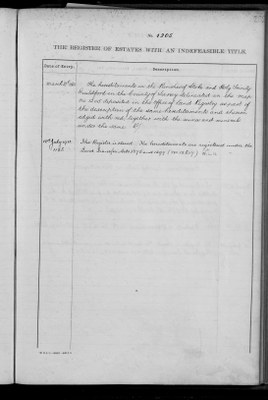 No. 1205
THE REGISTER OF ESTATES WITH AN INDEFEASIBLE TITLE.
Date of Entry. Description.
March The hereditaments in the Parishes of Stoke and Holy Trinity
Guildford in the County of Surrey delineated on the map
deposited in the Office of Land Registry as part of
the description of the same hereditaments and
edged with red, together with the mines and minerals
under the same.
July This Register is closed. The hereditaments are registered under the
Land Transfer Acts 1875 and 1897